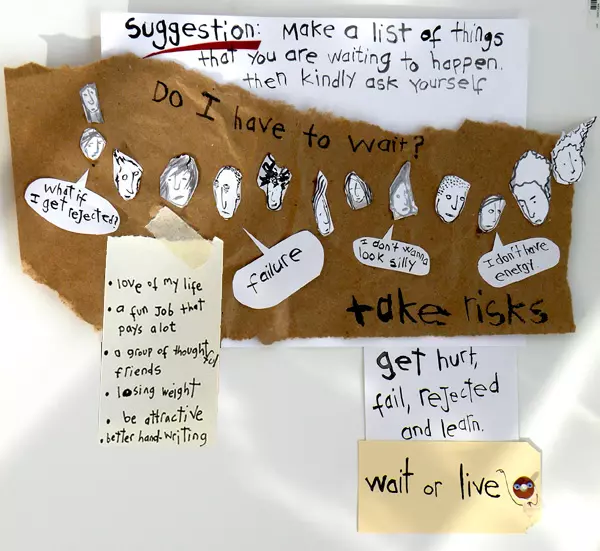 Suggestion: Make a list of things
that you are waiting to happen.
then kindly ask yourself
Do I have to wait?
what if
I get rejected?
failure
I don't wanna
look silly
I don't have
energy.
take risks
• love of my life
• a fun job that
pays alot
• a group of thoughtful
friends
• losing weight
• be attractive
• better hand-writing
get hurt,
fail, rejected
and learn.
wait or live